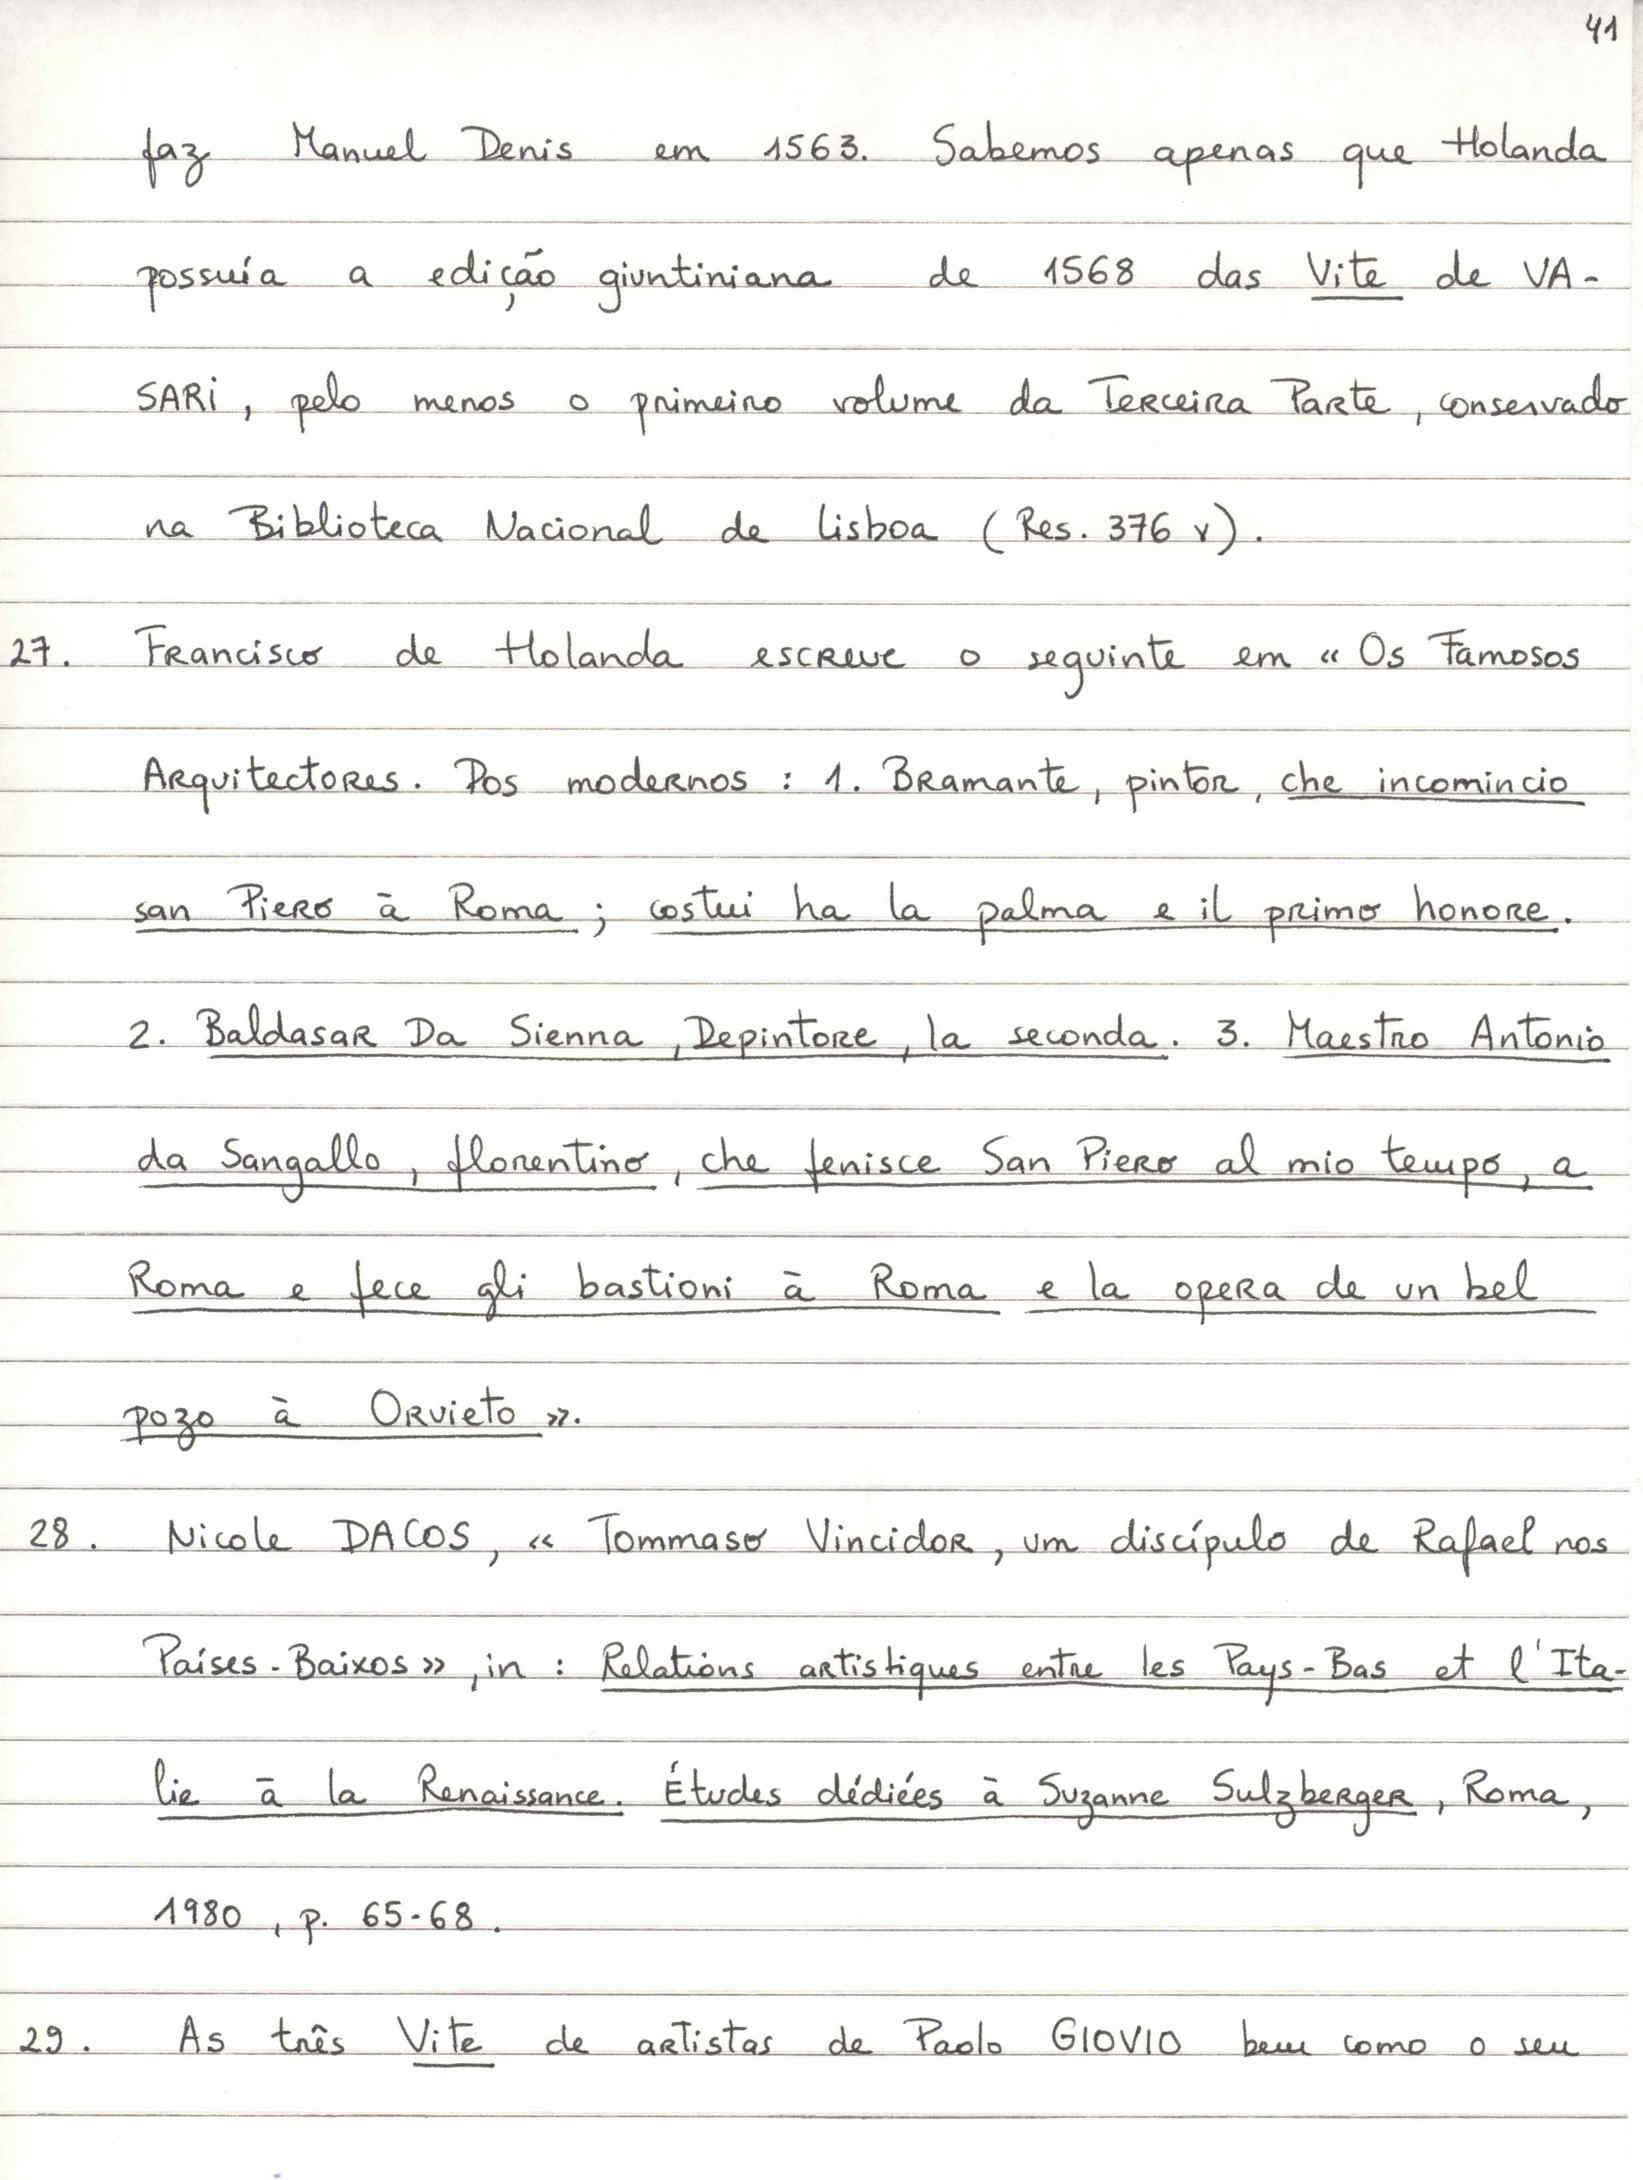 41
faz Manuel Denis em 1563. Sabemos apenas que Holanda
possuía a edição giuntiniana de 1568 das Vite de VA-
SARI, pelo menos o primeiro volume da Terceira Parte, conservado
na Biblioteca Nacional de Lisboa (Res. 376 v).
27. Francisco de Holanda escreve o seguinte em « Os Famosos
Arquitectores. Dos modernos : 1. Bramante, pintor, che incomincio
san Piero à Roma ; costui ha la palma e il primo honore.
2. Baldasar Da Sienna, Depintore, la seconda. 3. Maestro Antonio
da Sangallo, florentino, che fenisce San Piero al mio tempo, a
Roma e fece gli bastioni à Roma e la opera de un bel
pozo à Orvieto ».
28. Nicole DACOS, « Tommaso Vincidor, um discípulo de Rafael nos
Países-Baixos », in : Relations artistiques entre les Pays-Bas et l'Ita-
lie à la Renaissance. Études dédiées à Suzanne Sulzberger, Roma,
1980, p. 65-68.
29. As três Vite de artistas de Paolo GIOVIO bem como o seu